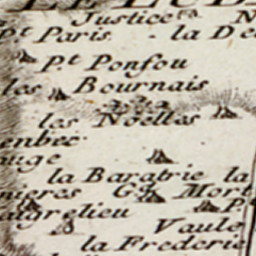 Justice
p.t Paris la De
P.t Ponfou
les Bournais
les Noëlles
enbec
uge
la Baratrie la
nieres G.d Mort
aigrelieu P.
Vaule
la Frederie